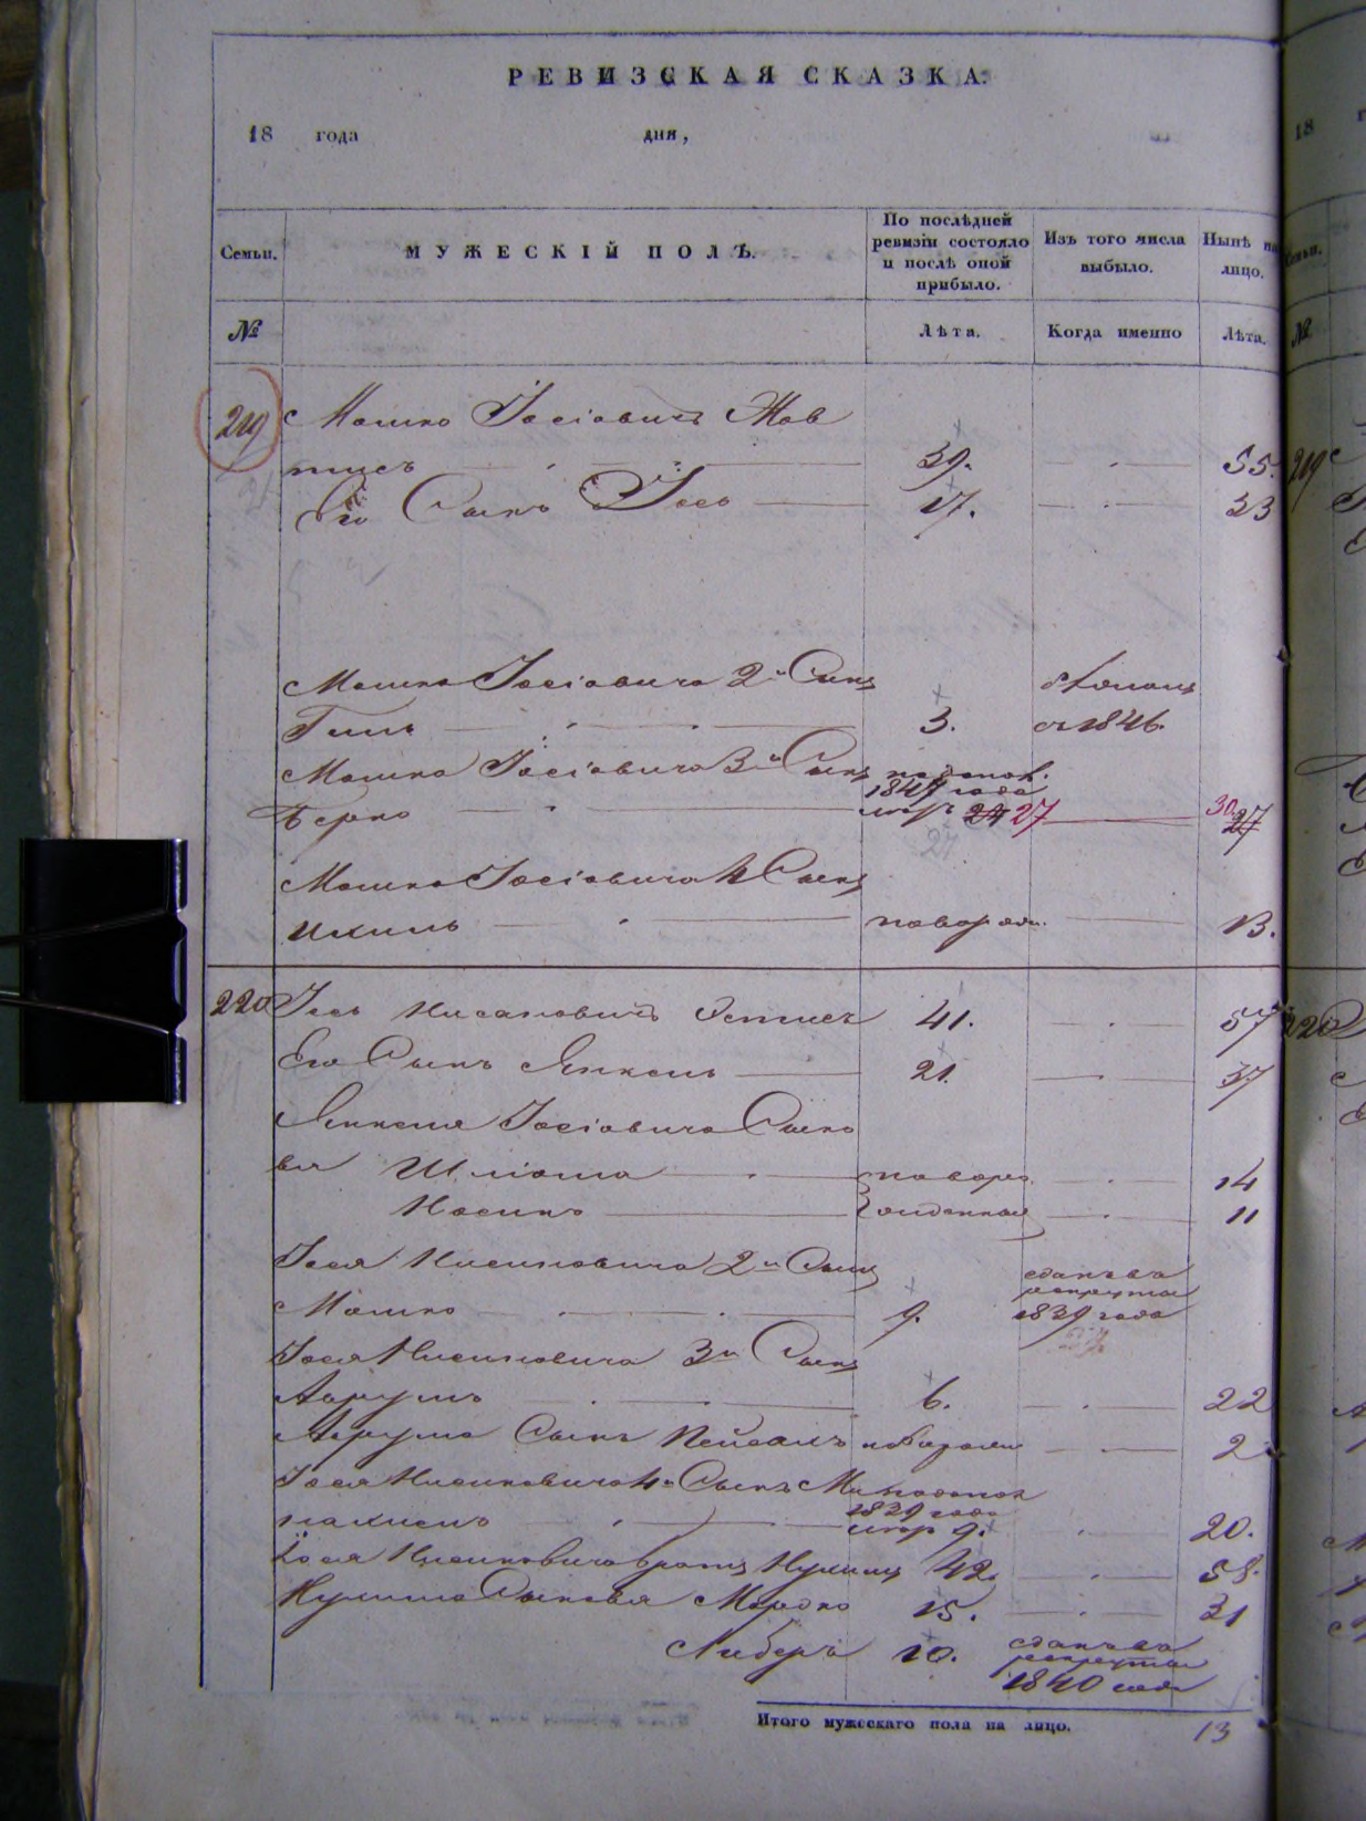 РЕВИЗСКАЯ СКАЗКА.
18 года дня,
Семьи. МУЖЕСКІЙ ПОЛЪ. По послѣдней ревизіи состояло и послѣ оной прибыло. Изъ того числа выбыло. Нынѣ на лицо.
№ Лѣта. Когда именно Лѣта.
219 Мошко Іосіовичъ Жов
тисъ 39. 55.
Его Сынъ Іось 17. 33
Мошка Іосіовича 2й Сынъ
3. съ 1846.
Мошка Іосіовича 3й Сынъ по допол.
1847 года
Берко 24 27 30 27
Мошка Іосіовича 4 Сынъ
Ихиль новорож. 13.
220 Іось Нисановичъ 41. 57
Его Сынъ Янкель 21. 37
Янкеля Іосіовича Сыно
вья Шліома новоро 14
Носинъ жденные 11
Іося Нисановича 2й Сынъ сданъ въ
рекруты
Мошко 9. 1839 года
Іося Нисановича 3й Сынъ
Аврумъ 6. 22
Аврума Сынъ Пейсахъ новорожд 2
Іося Нисановича 4й Сынъ М
1839 года
нахимъ 9. 20.
Іося Нисановича братъ Нухимъ 42. 58.
Нухима Сыновья Мордко 15. 31
Либеръ 10. сданъ въ
рекруты
1840 года
Итого мужескаго пола на лицо. 13